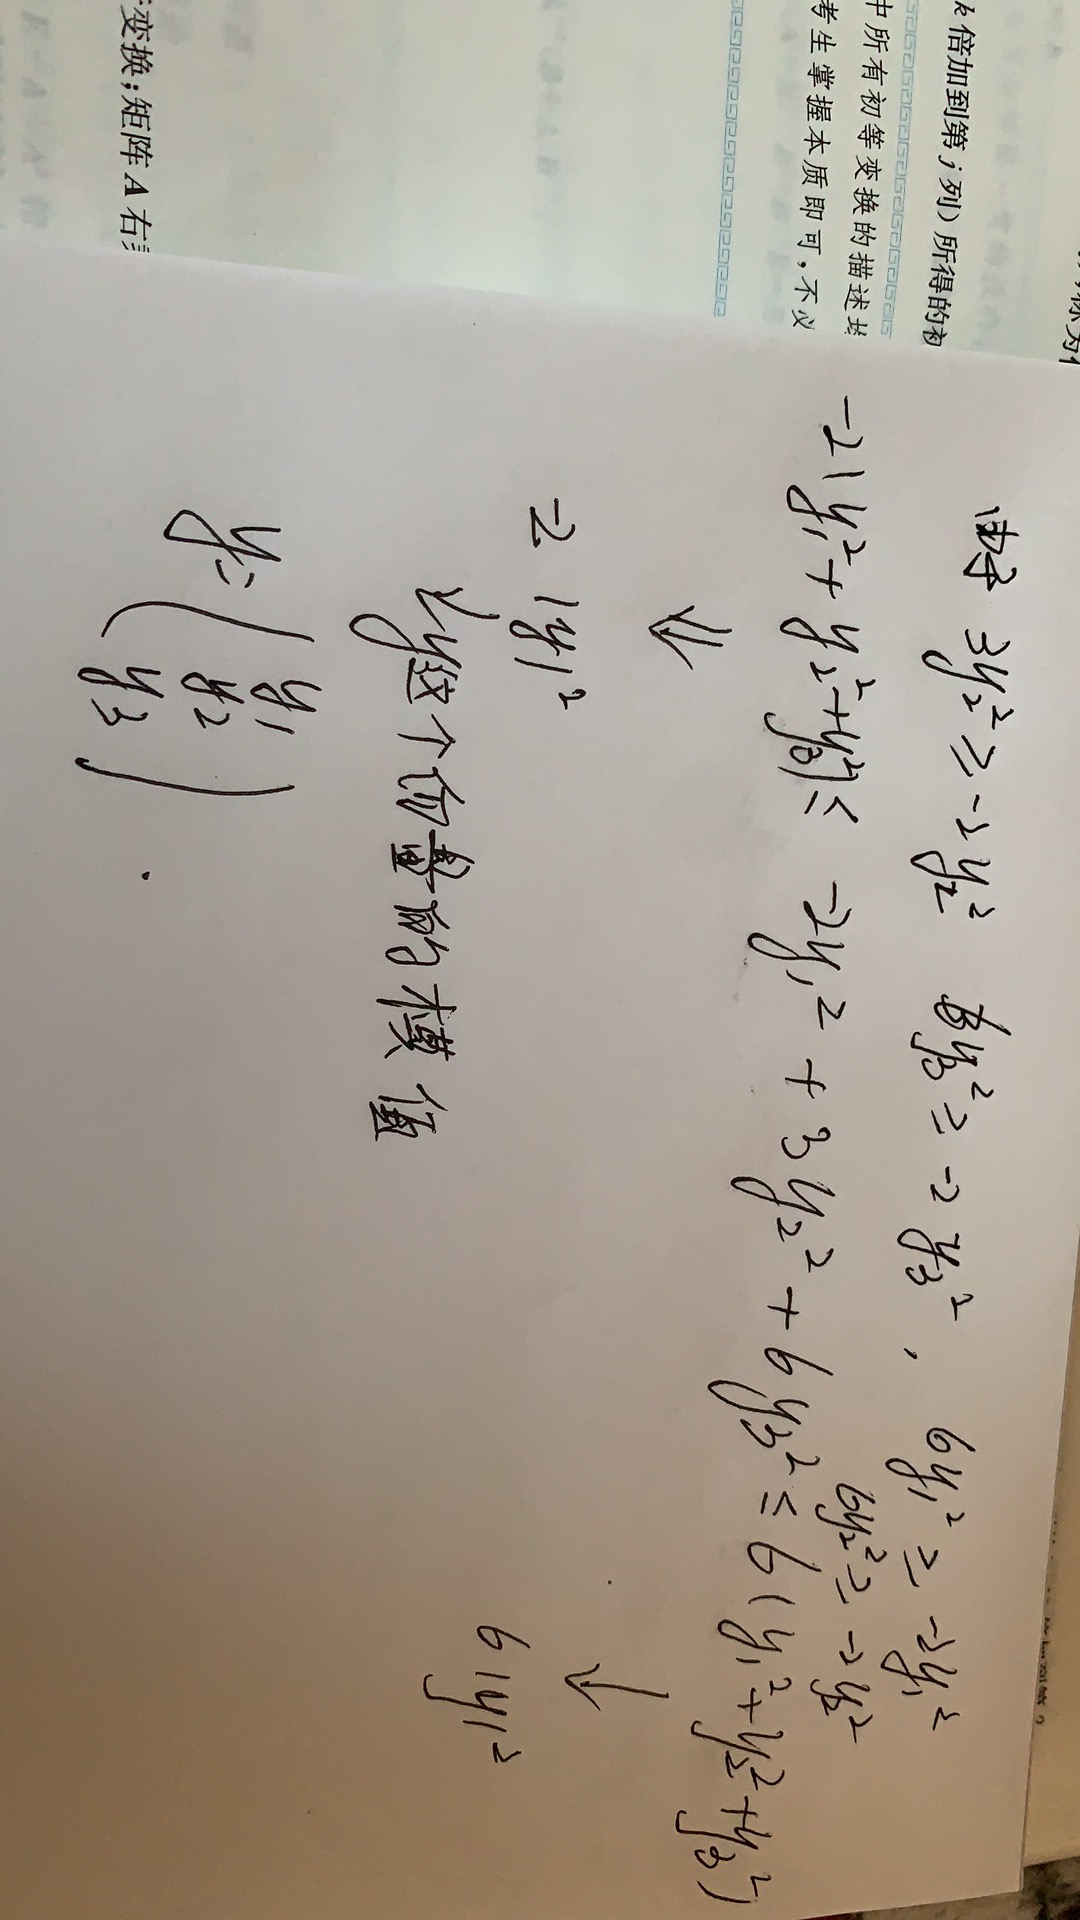 k倍加到第j列)所得的初
中所有初等变换的描述
考生掌握本质即可,不必
变换;矩阵A右
由于 3y₂² ≥ -2y₂² 6y₃² ≥ -2y₃², 6y₁² ≥ -2y₁²
6y₂² ≥ -2y₂²
-2(y₁²+y₂²+y₃²) ≤ -2y₁² + 3y₂² + 6y₃² ≤ 6(y₁²+y₂²+y₃²)
⇓ ↓
-2|y|² 6|y|²
y这个向量的模值
y=(y₁ y₂ y₃)